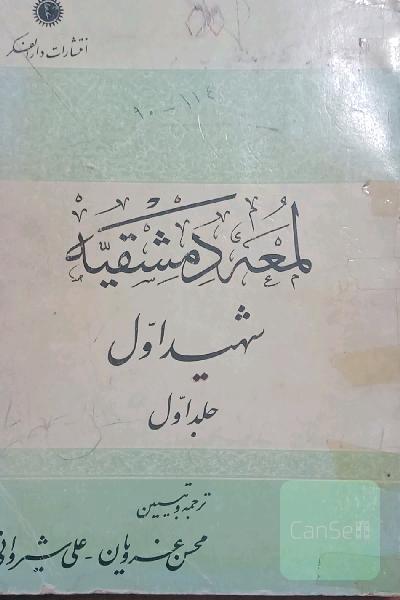 انتشارات دارالفکر
لمعهٔ دمشقیه
شهید اوّل
جلد اوّل
ترجمه و تبیین
محسن غرویان - علی شیروانی
CanSell